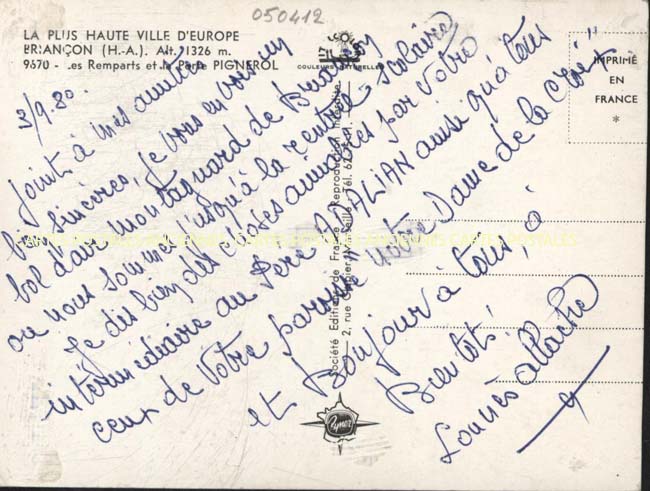 050412
LA PLUS HAUTE VILLE D'EUROPE
BRIANÇON (H.-A.). Alt. 1326 m.
9670 - Les Remparts et la Porte PIGNEROL
COULEURS NATURELLES
IMPRIMÉ
EN
FRANCE
*
3/9.80.
Joint à mes amitiés
bien sincères, je vous envoie un
bol d'air montagnard de Briançon
où nous sommes jusqu'à la rentrée scolaire
Je dis bien des choses aimables par votre
intermédiaire au Père DALIAN ainsi qu'à tous
ceux de votre paroisse "Notre Dame de la Croix"
et Bonjour à tous, à
Bientôt!
Société Editions de France
Reproduction interdite